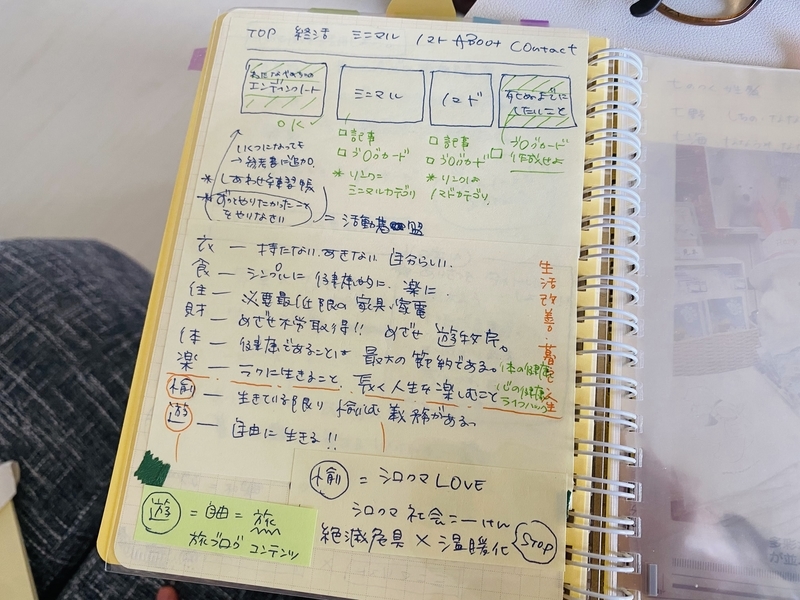 TOP 終活 ミニマル ノマド ABOUT Contact
エンディングノート
ミニマル
ノマド
死ぬまでに
したいこと
OK✓
□ 記事
□ ブログカード
* リンクニ
ミニマルカテゴリ
□ 記事
□ ブログカード
* リンクは
ノマドカテゴリ
□ ブログカード
作成せよ
いくつになっても
→ 参考書に追加。
* しあわせ練習帳
* ずっとやりたかったことを
をやりなさい
= 活動基盤
衣 ー 持たない。あきない 自分らしい。
食 ー シンプルに 健康的に、楽に。
住 ー 必要最低限の家具、家電
財 ー めざせ不労取得!! めざせ 遊牧民。
体 ー 健康であることは 最大の節約である。
楽 ー ラクに生きること、長く人生を楽しむこと
愉 ー 生きている限り 愉しむ 義務がある。
遊 ー 自由に生きる!!
生活改善・暮らし・人生
体の健康
心の健康
ライフハック
愉 = シロクマ LOVE
シロクマ 社会こーけん
絶滅危具 × 温暖化 STOP
遊 = 自由 = 旅
旅ブログ コンテンツ